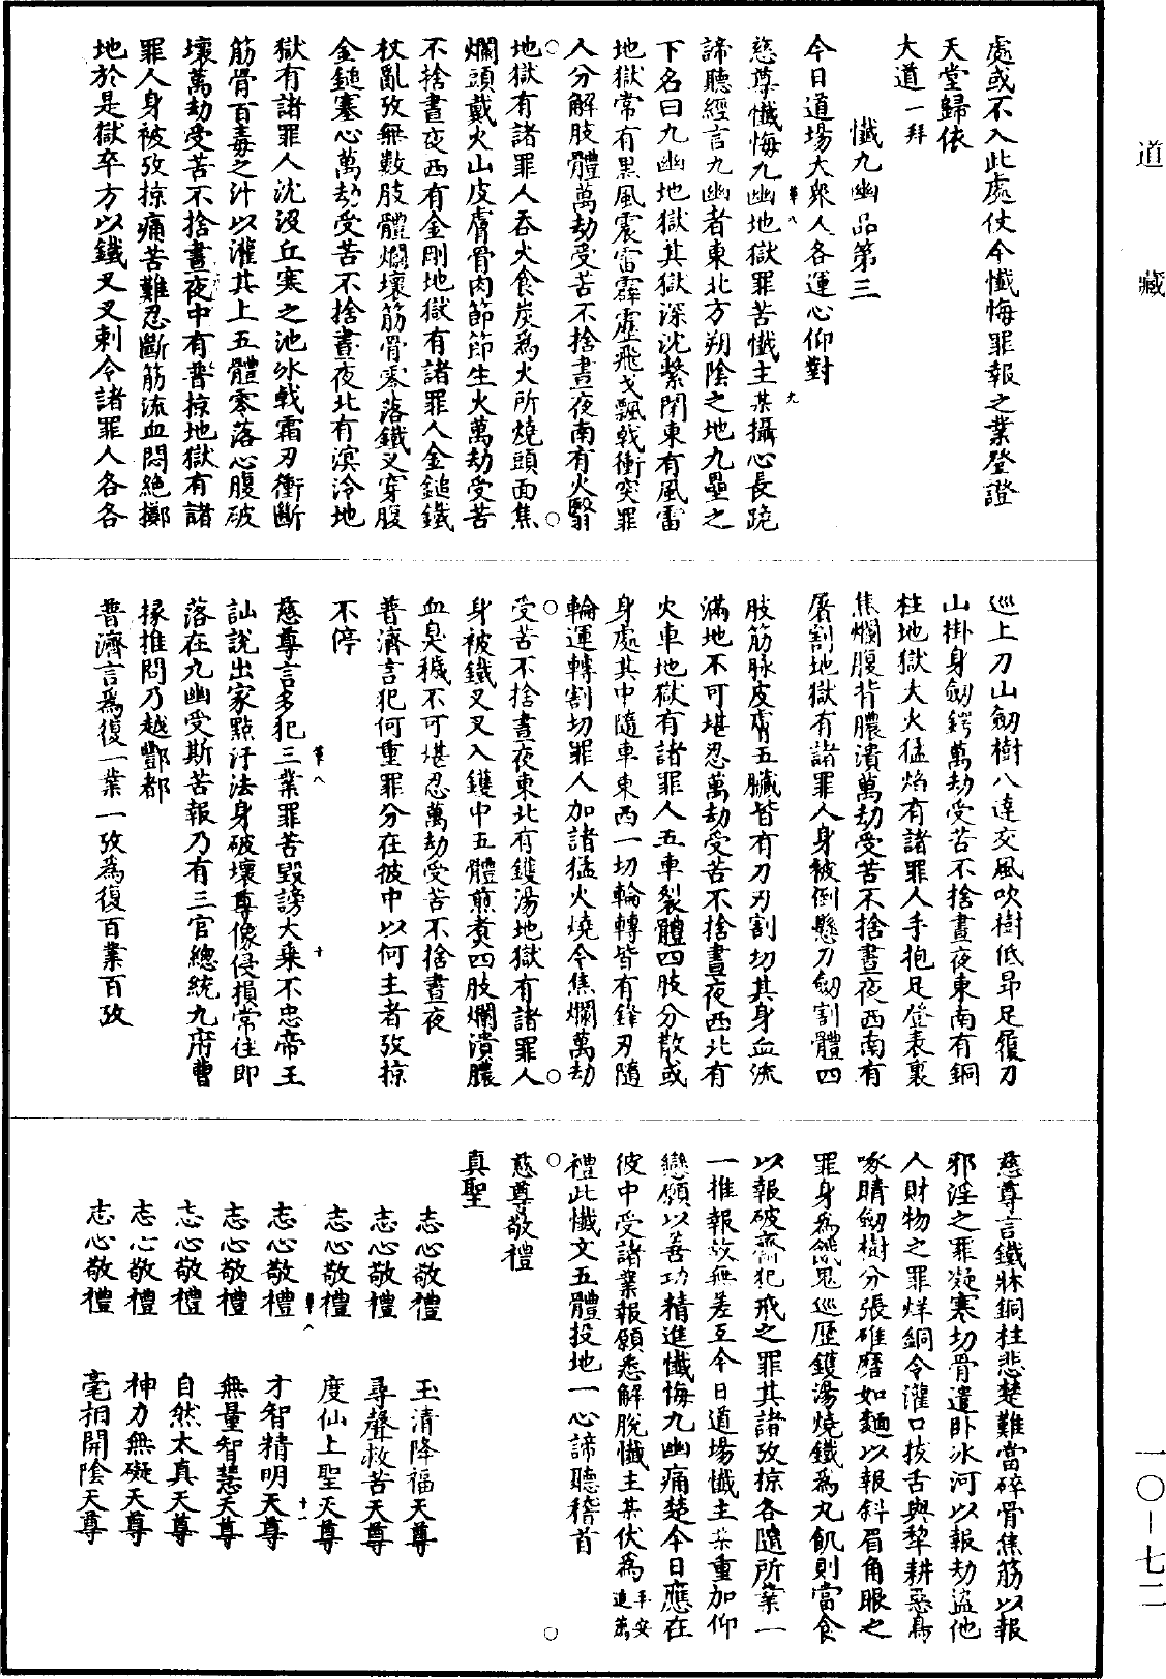 處或不入此處仗今懺悔罪報之業登證
天堂歸依
大道一拜
懺九幽品第三
今日道場大衆人各運心仰對
慈尊懺悔九幽地獄罪苦懺主某攝心長跪
諦聽經言九幽者東北方朔陰之地九壘之
下名曰九幽地獄其獄深沈繫閉東有風雷
地獄常有黑風震雷霹靂飛戈飄戟衝突罪
人分解肢體萬劫受苦不捨晝夜南有火翳
地獄有諸罪人吞火食炭為火所燒頭面焦
爛頭戴火山皮膚骨肉節節生火萬劫受苦
不捨晝夜西有金剛地獄有諸罪人金鎚鐵
杖亂攷無數肢體爛壞筋骨零落鐵叉穿腹
金鎚塞心萬劫受苦不捨晝夜北有溟泠地
獄有諸罪人沈沒丘寒之池氷戟霜刃衝斷
筋骨百毒之汁以灌其上五體零落心腹破
壞萬劫受苦不捨晝夜中有普掠地獄有諸
罪人身被攷掠痛苦難忍斷筋流血悶絕擲
地於是獄卒方以鐵叉叉剌令諸罪人各各
巡上刀山劒樹八達交風吹樹低昂足履刀
山掛身劒鍔萬劫受苦不捨晝夜東南有銅
柱地獄大火猛焰有諸罪人手抱足登表裏
焦爛腹背膿潰萬劫受苦不捨晝夜西南有
屠割地獄有諸罪人身被倒懸刀劒割體四
肢筋脉皮膚五臟皆有刀刃割切其身血流
滿地不可堪忍萬劫受苦不捨晝夜西北有
火車地獄有諸罪人五車裂體四肢分散或
身處其中隨車東西一切輪轉皆有鋒刃隨
輪運轉割切罪人加諸猛火燒令焦爛萬劫
受苦不捨晝夜東北有鑊湯地獄有諸罪人
身被鐵叉叉入鑊中五體煎煑四肢爛潰膿
血臭穢不可堪忍萬劫受苦不捨晝夜
普濟言犯何重罪分在彼中以何主者攷掠
不停
慈尊言多犯三業罪苦毀謗大乘不忠帝王
訕說出家點汙法身破壞尊像侵損常住即
落在九幽受斯苦報乃有三官總統九府曹
掾推問乃越酆都
普濟言為復一業一攷為復百業百攷
慈尊言鐵牀銅柱悲楚難當碎骨焦筋以報
邪淫之罪凝寒切骨遣卧氷河以報劫盜他
人財物之罪烊銅令灌口拔舌與犂耕惡鳥
啄睛劒樹分張碓磨如麵以報斜眉角眼之
罪身為餓鬼巡歷鑊湯燒鐵為丸飢則當食
以報破齋犯戒之罪其諸攷掠各隨所業一
一推報故無差互今日道場懺主某重加仰
戀願以善功精進懺悔九幽痛楚今日應在
彼中受諸業報願悉解脫懺主某伏為平安追薦
禮此懺文五體投地一心諦聽稽首
慈尊敬禮
真聖
志心敬禮　玉清降福天尊
志心敬禮　尋聲救苦天尊
志心敬禮　度仙上聖天尊
志心敬禮　才智精明天尊
志心敬禮　無量智慧天尊
志心敬禮　自然太真天尊
志心敬禮　神力無礙天尊
志心敬禮　毫相開陰天尊
道藏
一〇—七二